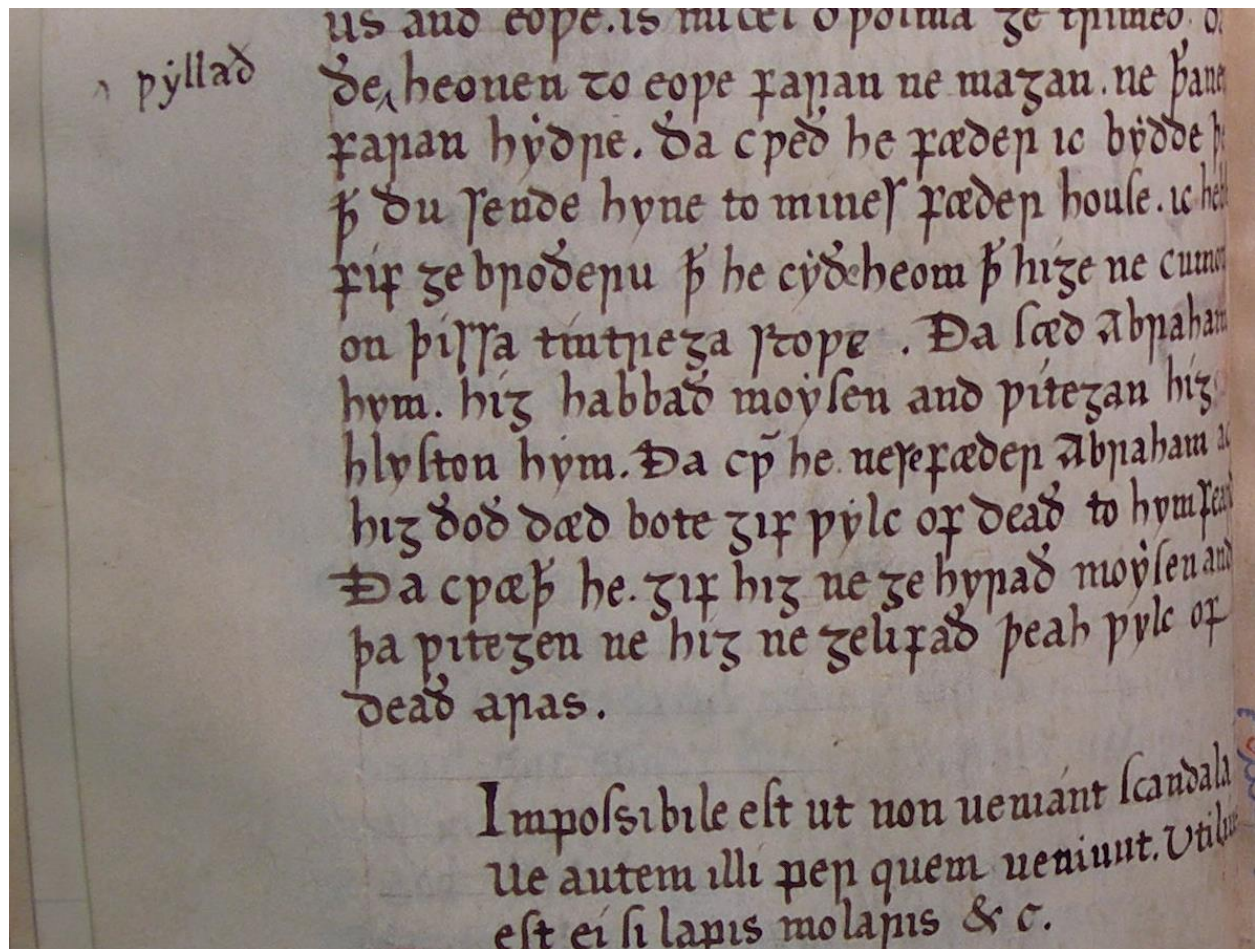 us and eoƿe. is micel ðƿolma ge trimed.
ƿyllað
ðe heonen to eoƿe faran ne magan. ne þanen
faran hẏdre. Ða cƿeð he fæder ic bẏdde þe
ꝥ ðu sende hyne to mines fæder house. ic hebbe
fif ge broðeru ꝥ he cẏðe heom ꝥ hige ne cumon
on þissa tintrega stoƿe . Ða sæd Abraham
hym. hig habbað moẏsen and ƿitegan hig
hlyston hẏm. Ða cƿ̄ he nese fæder Abraham ac
hig ðoð dæd bote gif ƿẏlc of deað to hym
Ða cƿæþ he. gif hig ne ge hyrað moẏsen and
þa ƿitegen ne hig ne gelifað þeah ƿẏlc of
deað aras.
Impossibile est ut non ueniánt scandala
Ue autem illi per quem ueniunt. Utilius
est ei si lapis molaris & c.